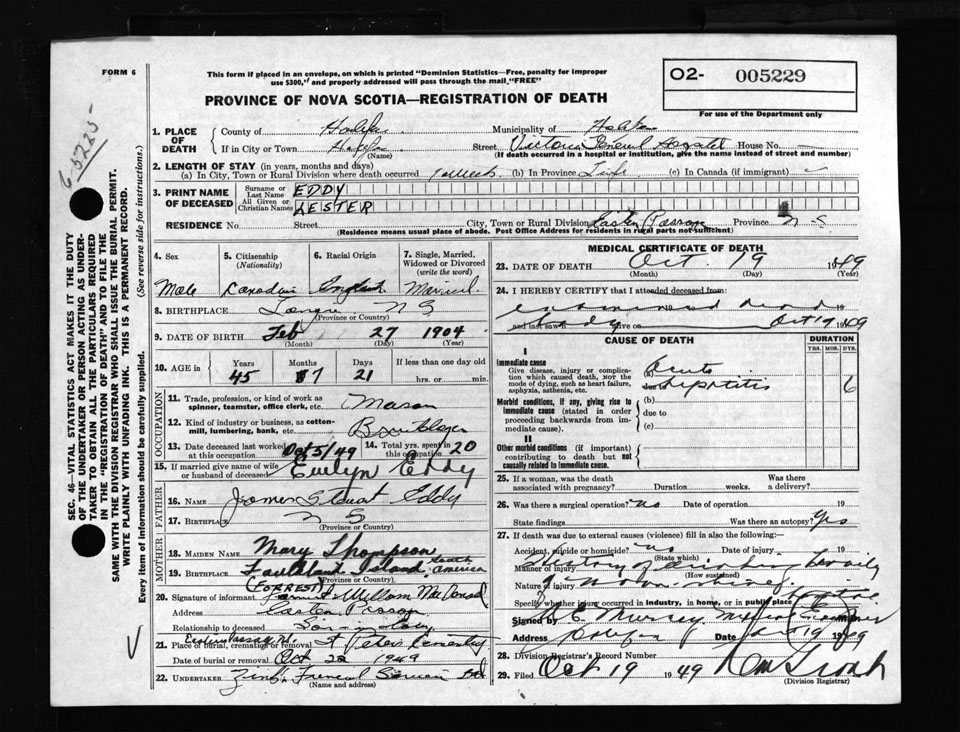 FORM 6
This form if placed in an envelope, on which is printed "Dominion Statistics—Free, penalty for improper
use $300," and properly addressed will pass through the mail "FREE"
O2- 005229
For use of the Department only
PROVINCE OF NOVA SCOTIA—REGISTRATION OF DEATH
6-5225-
SEC. 46—VITAL STATISTICS ACT MAKES IT THE DUTY
OF THE UNDERTAKER OR PERSON ACTING AS UNDER-
TAKER TO OBTAIN ALL THE PARTICULARS REQUIRED
IN THE "REGISTRATION OF DEATH" AND TO FILE THE
SAME WITH THE DIVISION REGISTRAR WHO SHALL ISSUE THE BURIAL PERMIT.
WRITE PLAINLY WITH UNFADING INK. THIS IS A PERMANENT RECORD.
Every item of information should be carefully supplied. (See reverse side for instructions.)
1. PLACE OF DEATH County of Halifax Municipality of Halifax
If in City or Town Halifax Street Victoria General Hospital House No. —
(Name) (If death occurred in a hospital or institution, give the name instead of street and number)
2. LENGTH OF STAY (in years, months and days)
(a) In City, Town or Rural Division where death occurred 1 Week (b) In Province Life (c) In Canada (if immigrant)
3. PRINT NAME OF DECEASED Surname or Last Name EDDY
All Given or Christian Names LESTER
RESIDENCE No. Street City, Town or Rural Division Eastern Passage Province N S
(Residence means usual place of abode. Post Office Address for residents in rural parts not sufficient)
4. Sex 5. Citizenship (Nationality) 6. Racial Origin 7. Single, Married, Widowed or Divorced (write the word)
Male Canadian English Married
8. BIRTHPLACE N S
(Province or Country)
9. DATE OF BIRTH Feb 27 1904
(Month) (Day) (Year)
10. AGE in Years Months Days If less than one day old
45 7 21 hrs. or min.
OCCUPATION
11. Trade, profession, or kind of work as spinner, teamster, office clerk, etc. Mason
12. Kind of industry or business, as cotton-mill, lumbering, bank, etc.
13. Date deceased last worked at this occupation Oct 5/49 14. Total yrs. spent in this occupation 20
15. If married give name of wife or husband of deceased Evelyn Eddy
FATHER
16. NAME James Stewart Eddy
17. BIRTHPLACE N S
(Province or Country)
MOTHER
18. MAIDEN NAME Mary Thompson
19. BIRTHPLACE Island South America
(Province or Country)
(FORREST)
20. Signature of informant William MacDonald
Address Eastern Passage
Relationship to deceased Son in Law
Eastern Passage N.S.
21. Place of burial, cremation or removal St Peters Cemetery
Date of burial or removal Oct 22 1949
22. UNDERTAKER Zink's Funeral Service Ltd
(Name and address)
MEDICAL CERTIFICATE OF DEATH
23. DATE OF DEATH Oct. 19 1949
(Month) (Day) (Year)
24. I HEREBY CERTIFY that I attended deceased from:
examined dead 19
and last saw body alive on Oct 19 1949
CAUSE OF DEATH DURATION
YRS. MOS. DYS.
I
Immediate cause
Give disease, injury or complication which caused death, not the mode of dying, such as heart failure, asphyxia, asthenia, etc.
(a) Acute
due to hepatitis 6
Morbid conditions, if any, giving rise to immediate cause (stated in order proceeding backwards from immediate cause).
(b)
due to
(c)
II
Other morbid conditions (if important) contributing to death but not causally related to immediate cause.
25. If a woman, was the death associated with pregnancy? Duration weeks. Was there a delivery?
26. Was there surgical operation? no Date of operation 19
State findings Was there an autopsy? Yes
27. If death was due to external causes (violence) fill in also the following:
Accident, suicide or homicide? no Date of injury - 19
(State which)
Manner of injury History of drinking heavily
(How sustained)
Nature of injury
Specify whether injury occurred in industry, in home, or in public place
Signed by Murray Medical Examiner
Address Halifax Date Oct 19 1949
28. Division Registrar's Record Number
29. Filed Oct 19 1949
(Division Registrar)